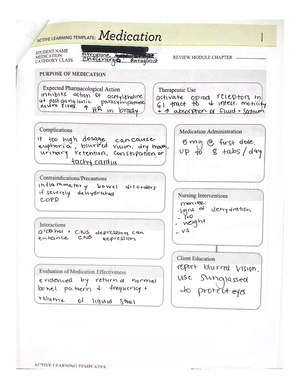 ACTIVE LEARNING TEMPLATE: Medication
STUDENT NAME
MEDICATION Atropine
REVIEW MODULE CHAPTER
CATEGORY CLASS
PURPOSE OF MEDICATION
Expected Pharmacological Action
inhibits action of acetylcholine
at postganglionic parasympathetic
sites ↑ HR in brady
Therapeutic Use
activate opioid receptors in
GI tract to ↓ intest. motility
+ ↑ absorption of fluid + sodium
Complications
if too high dosage can cause
euphoria, blurred vision, dry mouth,
urinary retention, constipation or
tachycardia
Medication Administration
5mg @ first dose,
up to 8 tabs/day
Contraindications/Precautions
inflammatory bowel disorders
if severely dehydrated
COPD
Nursing Interventions
monitor
signs of dehydration
I+O
weight
VS
Interactions
alcohol + CNS depressants can
enhance CNS depression
Client Education
report blurred vision,
use sunglasses
to protect eyes
Evaluation of Medication Effectiveness
evidenced by return of normal
bowel pattern + frequency +
volume of liquid stool
ACTIVE LEARNING TEMPLATES